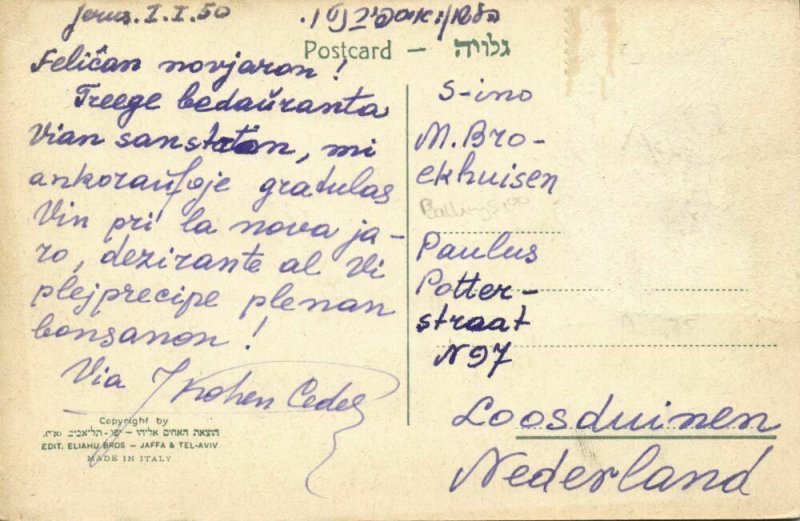 Jerus. 1.I.50
Postcard — גלויה
Feliĉan novjaron!
Treege bedaŭranta
Vian sanstaton, mi
ankoraŭfoje gratulas
Vin pri la nova ja-
ro, dezirante al Vi
plejprecipe plenan
bonsanon!
Via
Kohen Cedek
S-ino
M. Bro-
ekhuisen
Paulus
Potter-
straat
N 97
Loosduinen
Nederland
Copyright by
הוצאת האחים אליהו - יפו - תל-אביב
EDIT. ELIAHU BROS — JAFFA & TEL-AVIV
MADE IN ITALY